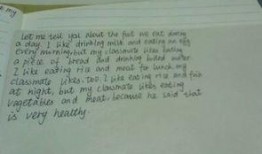 my
Let me tell you about the food we eat during
a day. I like drinking milk and eating an egg
every morning, but my classmate likes eating
a piece of bread and drinking boiled water
I like eating rice and meat for lunch my
classmate likes, too. I like eating rice and fish
at night, but my classmate likes eating
vegetables and meat. because he said that
is very healthy.